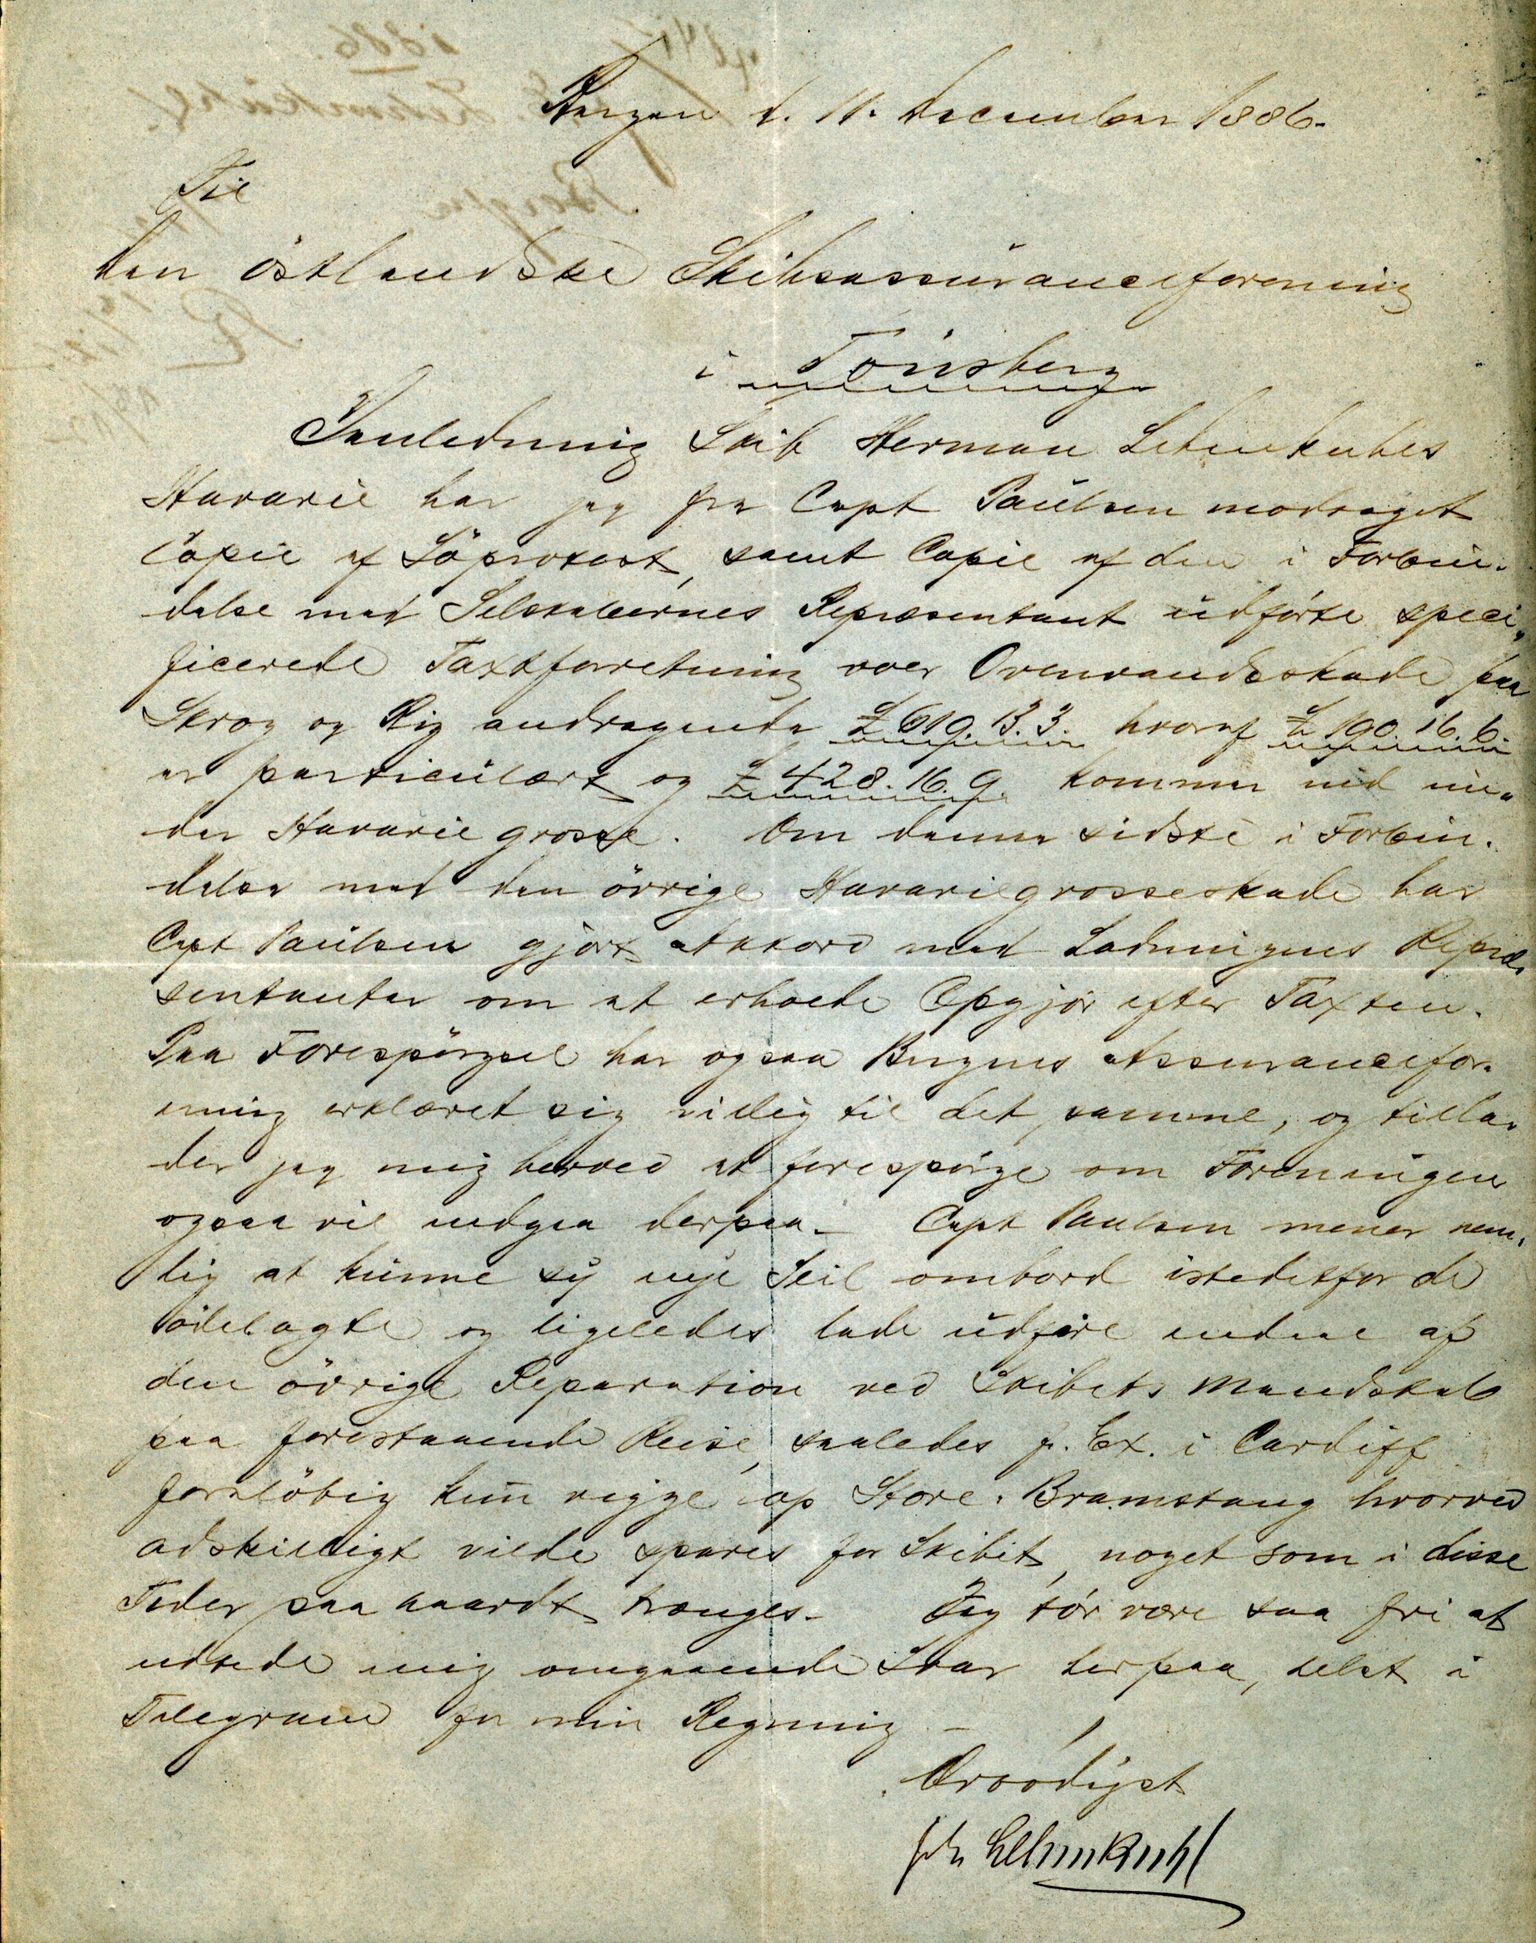 Bergen d. 11. December 1886.
Til
den östlandske Skibsassüranceforening
i Tönsberg
Anledning Skib Herman Lehmkuhls
Havarie har jeg fra Capt Paülsen modtaget
Copie af Söprotest, samt Copie af den i Forbin-
delse med Selskabernes Repræsentant üdförte speci-
ficerede Taxtforretning over Ovenvandsskade paa
Skrog og Rig andragende £ 619. 13. 3. hvoraf £ 190. 16. 6.
er particülært og £ 428. 16. 9. kommer ind ün-
der Havarie grosse. Om denne sidste i Forbin-
delse med den övrige Havariegrosseskade har
Capt Paülsen gjort Akkord med Ladningens Repræ-
sentanter om at erholde Opgjör efter Taxten.
Paa Forespörgsel har ogsaa Bergens Assurancefor-
ening erklæret sig villig til det samme, og tilla-
der jeg mig herved at forespörge om Foreningen
ogsaa vil indgaa derpaa. Capt Paulsen mener nem-
lig at künne sÿ nye Seil ombord istedetfor de
ödelagte og ligeledes lade üdföre endeel af
den övrige Reparation ved Skibets Mandskab
paa forestaaende Reise, saaledes f. Ex. i Cardiff
forelöbig kün rigge op Store-Bramstang hvorved
adskilligt vilde spares for Skibet, noget som i disse
Tider saa haardt trænges. Jeg tör være saa fri at
udbede mig omgaaende Svar herpaa, helst i
Telegram for min Regning –
Ærbödigst
Joh Lehmkuhl